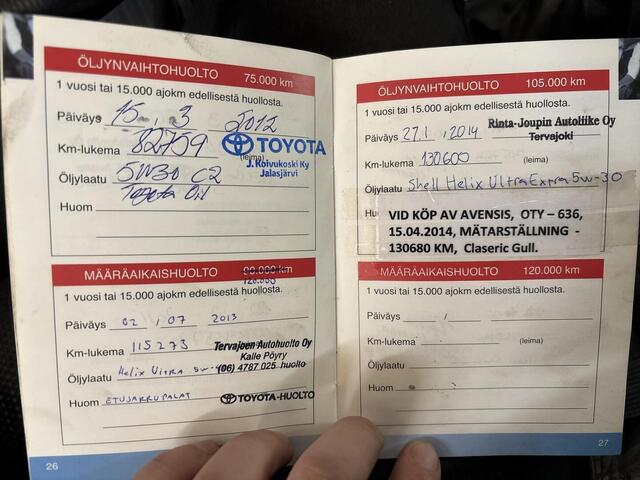 ÖLJYNVAIHTOHUOLTO 75.000 km
1 vuosi tai 15.000 ajokm edellisestä huollosta.
Päiväys 15. 3 2012
Km-lukema 82759 (leima)
TOYOTA
J. Koivukoski Ky
Jalasjärvi
Öljylaatu 5W30 C2
Toyota Oil
Huom
MÄÄRÄAIKAISHUOLTO 90.000 km
120.000
1 vuosi tai 15.000 ajokm edellisestä huollosta.
Päiväys 02 / 07 2013
Km-lukema 115273
Tervajoen Autohuolto Oy
Kalle Pöyry
(06) 4787 025 huolto
Öljylaatu Helix Ultra 5w-
Huom ETUJARRUPALAT
TOYOTA-HUOLTO
26
ÖLJYNVAIHTOHUOLTO 105.000 km
1 vuosi tai 15.000 ajokm edellisestä huollosta.
Päiväys 27.1 , 2014
Rinta-Joupin Autoliike Oy
Tervajoki
Km-lukema 130600 (leima)
Öljylaatu Shell Helix Ultra Extra 5w-30
Hu
VID KÖP AV AVENSIS, OTY – 636,
15.04.2014, MÄTARSTÄLLNING -
130680 KM, Claseric Gull.
MÄÄRÄAIKAISHUOLTO 120.000 km
1 vuosi tai 15.000 ajokm edellisestä huollosta.
Päiväys /
Km-lukema (leima)
Öljylaatu
Huom
27